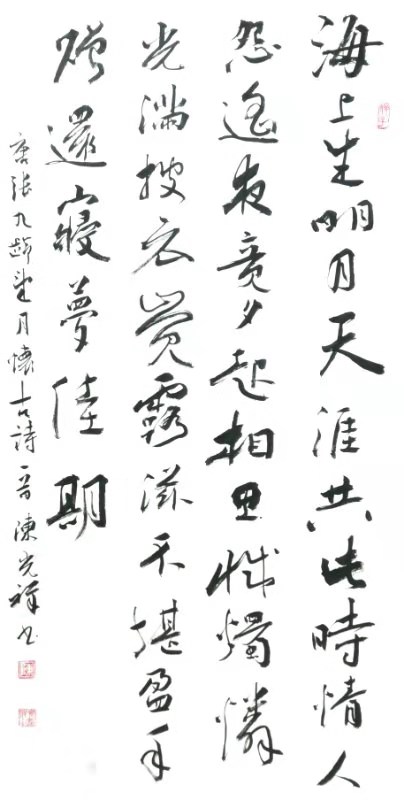 海上生明月天涯共此時情人
怨遙夜竟夕起相思滅燭憐
光滿披衣覺露滋不堪盈手
贈還寢夢佳期
唐張九齡望月懷古詩一首陳光祥书